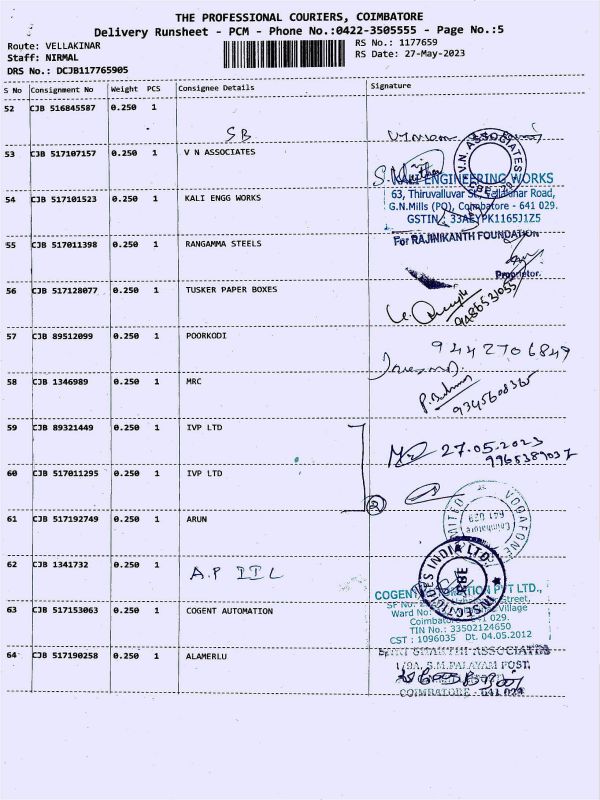 THE PROFESSIONAL COURIERS, COIMBATORE
Delivery Runsheet - PCM - Phone No.:0422-3505555 - Page No.:5
Route: VELLAKINAR
RS No.: 1177659
Staff: NIRMAL
RS Date: 27-May-2023
DRS No.: DCJB117765905
S No Consignment No Weight PCS Consignee Details Signature
52 CJB 516845587 0.250 1
SB
53 CJB 517107157 0.250 1 V N ASSOCIATES
V.N. ASSOCIATES
KALI ENGINEERING WORKS
63, Thiruvalluvar St, Vellakinar Road,
54 CJB 517101523 0.250 1 KALI ENGG WORKS
G.N.Mills (PO), Coimbatore - 641 029.
GSTIN : 33AE PK1165J1Z5
For RAJINIKANTH FOUNDATION
55 CJB 517011398 0.250 1 RANGAMMA STEELS
Proprietor.
56 CJB 517128077 0.250 1 TUSKER PAPER BOXES
9486531055
57 CJB 89512099 0.250 1 POORKODI
9442706849
58 CJB 1346989 0.250 1 MRC
9345608365
59 CJB 89321449 0.250 1 IVP LTD
27.05.2023
9965389037
60 CJB 517011295 0.250 1 IVP LTD
2
61 CJB 517192749 0.250 1 ARUN
VODAFONE
LIMITED
Coimbatore
641 029
62 CJB 1341732 0.250 1
A.P IIL
INSECTICIDES INDIA LTD
63 CJB 517153063 0.250 1 COGENT AUTOMATION
COGENT AUTOMATION PVT LTD.,
Street,
Ward No. Village
Coimbatore 641 029.
TIN No.: 33502124650
CST : 1096035 Dt. 04.05.2012
64 CJB 517190258 0.250 1 ALAMERLU
SHAKTHI ASSOCIATES
1/9A, S.M.PALAYAM POST,
COIMBATORE - 641 029